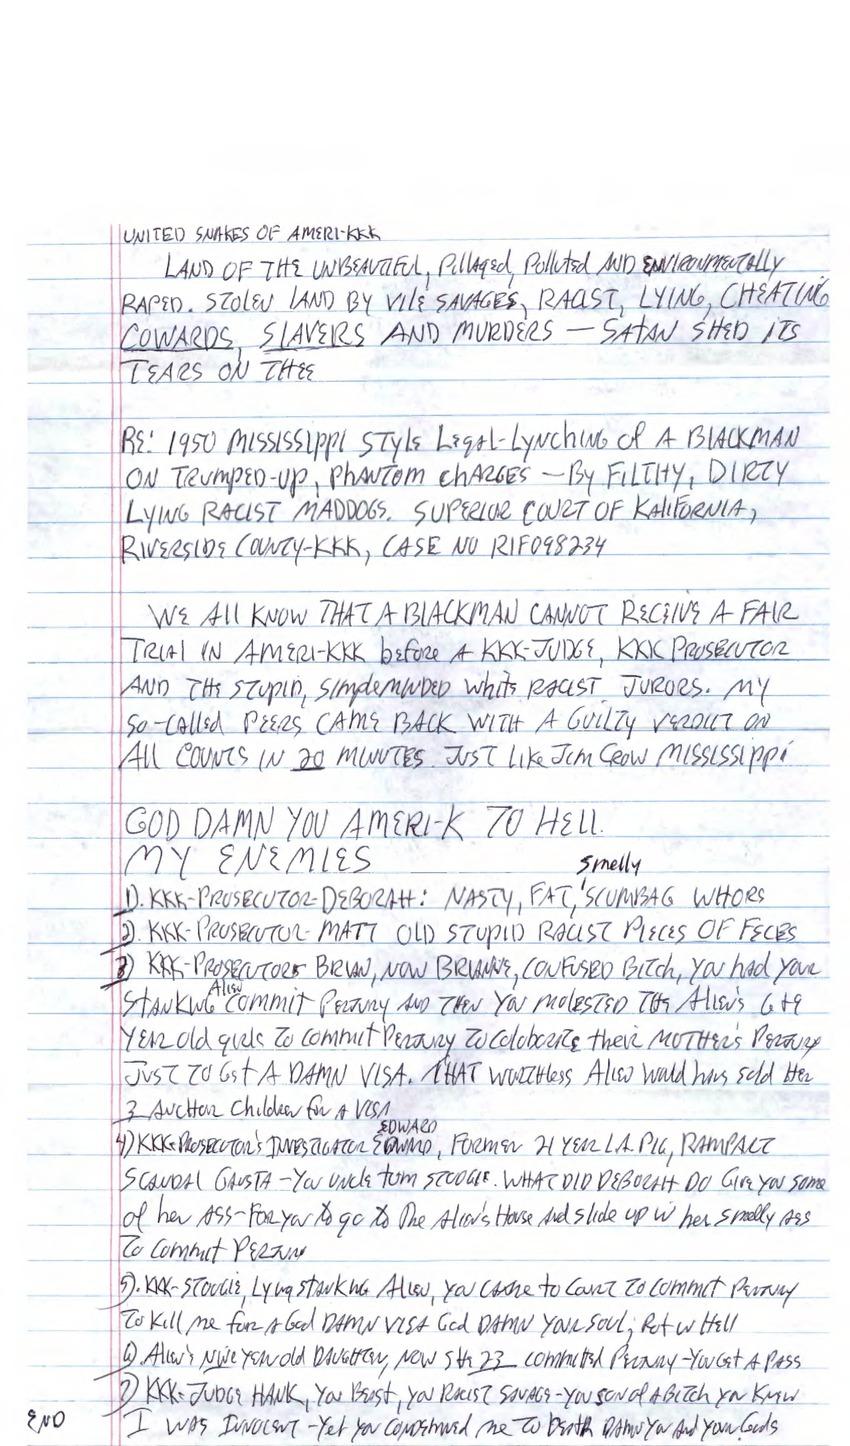 UNITED SNAKES OF AMERI-KKK
LAND OF THE UNBEAUTIFUL, Pillaged, Polluted AND ENVIRONMENTALLY
RAPED. STOLEN LAND BY VILE SAVAGES, RACIST, LYING, CHEATING
COWARDS, SLAVERS AND MURDERS — SATAN SHED ITS
TEARS ON THEE
RE: 1950 MISSISSIPPI STYLE Legal-Lynching of A BLACKMAN
ON TRUMPED-UP, PHANTOM CHARGES — By FILTHY, DIRTY
LYING RACIST MADDOGS. SUPERIOR COURT OF KALIFORNIA,
RIVERSIDE COUNTY-KKK, CASE NO RIF098234
WE All KNOW THAT A BLACKMAN CANNOT RECEIVE A FAIR
TRIAL IN AMERI-KKK before A KKK-JUDGE, KKK PROSECUTOR
AND THE STUPID, SimplEMINDED White RACIST JURORS. MY
SO-CALLED PEERS CAME BACK WITH A GUILTY VERDICT ON
All COUNTS IN 20 MINUTES JUST LIKE Jim Crow MISSISSIPPI
GOD DAMN YOU AMERI-K TO HELL.
MY ENEMIES
1). KKK-PROSECUTOR-DEBORAH: NASTY, FAT, Smelly SCUMBAG WHORS
2). KKK-PROSECUTOR-MATT OLD STUPID RACIST PIECES OF FECES
3) KKK-PROSECUTORS BRIAN, NOW BRIANNE, CONFUSED BITCH, YOU HAD YOUR
STANKING Alien COMMIT PERJURY AND THEN YOU MOLESTED THE Alien's 6 & 9
YEAR old girls TO COMMIT PERJURY TO Coloborate their MOTHER'S PERJURY
JUST TO Get A DAMN VISA. THAT WORTHLESS Alien Would have sold Her
3 Anchor Children for A VISA
4) KKK-PROSECUTOR'S INVESTIGATOR EDWARD, FORMER 21 YEAR L.A. PIG, RAMPART
SCANDAL - You Uncle Tom STOOGIE. WHAT DID DEBORAH DO Give you some
of her ASS-FOR you to go to The Alien's House And slide up in her smelly ass
To Commit PERJURY
5). KKK-STOOGIE, Lying STANKING Alien, you came to Court TO COMMIT PERJURY
TO Kill me for A God DAMN VISA God DAMN YOUR SOUL; Rot in Hell
6). Alien's NINE YEAR old DAUGHTER, NOW SHE 23 committed PERJURY-You Get A PASS
7) KKK-JUDGE HANK, You BEAST, you RACIST SAVAGE-you son of A Bitch you Knew
I WAS INNOCENT - Yet you condemned me TO DEATH DAMN You And your Gods
END